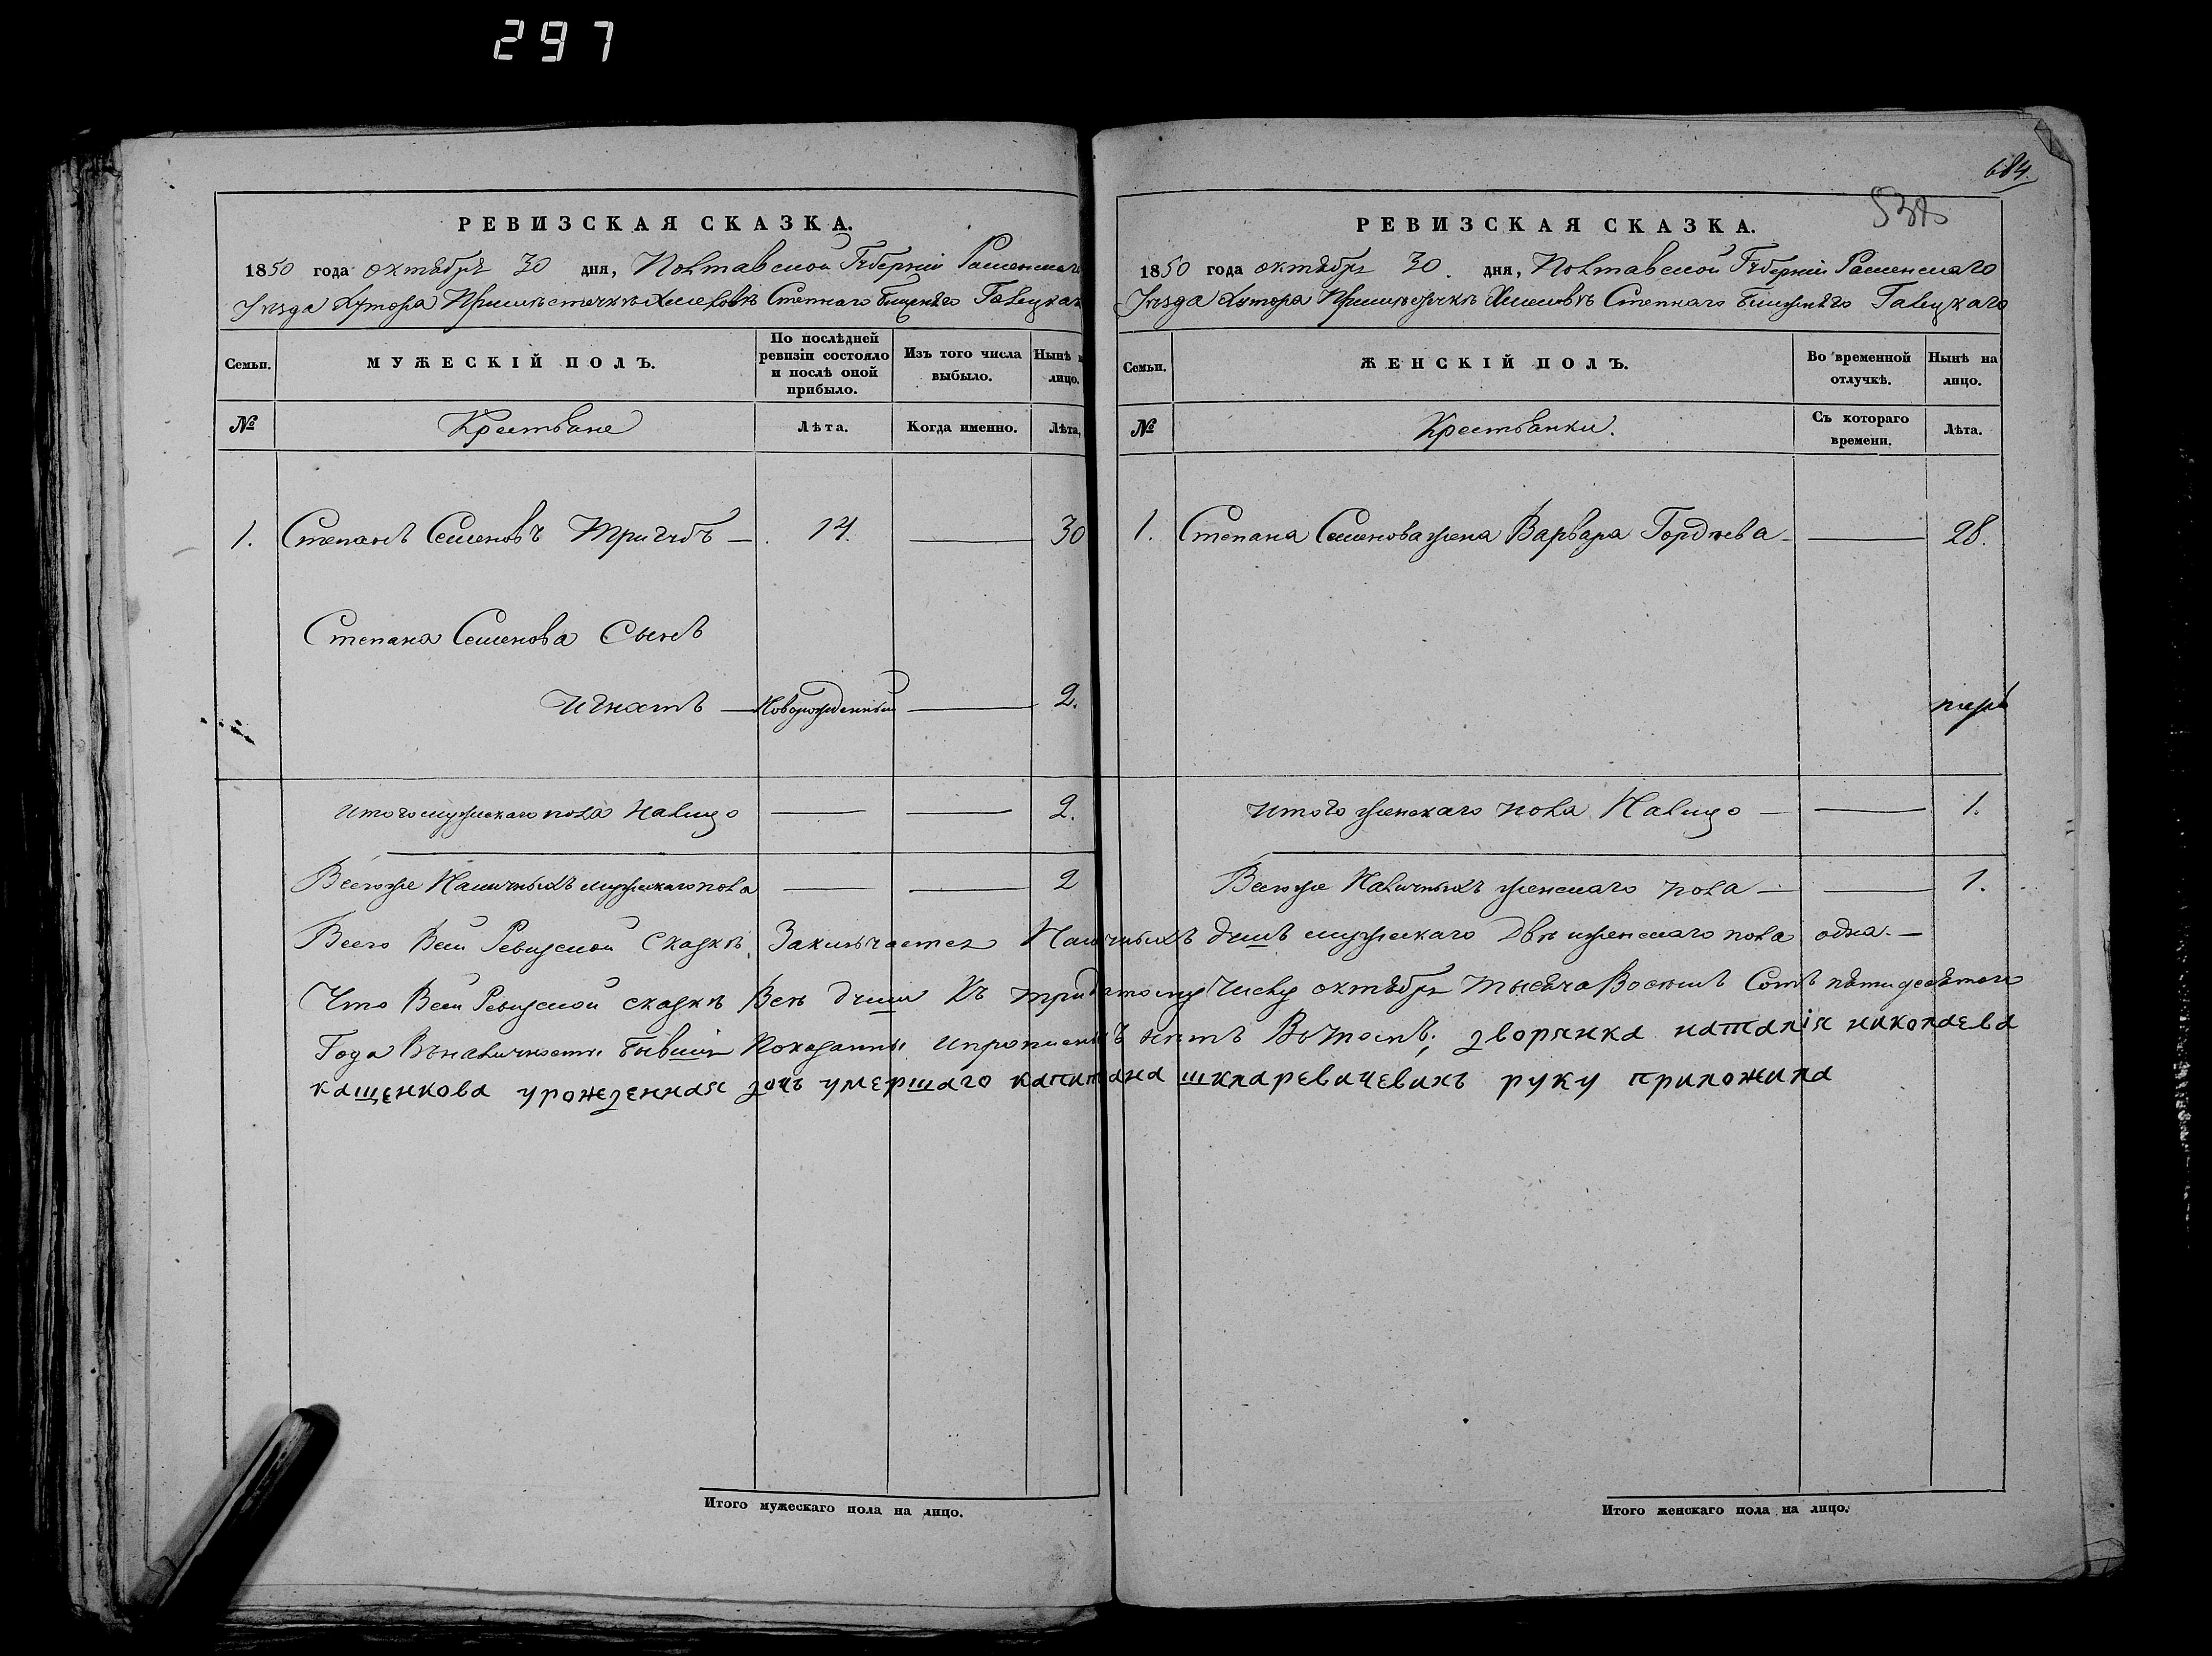 297
684.
538
РЕВИЗСКАЯ СКАЗКА.
1850 года октября 30 дня, Полтавской Губерніи Роменскаго
Уѣзда Хутора При мѣстечкѣ Хмеловкѣ Степнаго ближнѣго Галецкаго
Семьи. МУЖЕСКІЙ ПОЛЪ. По послѣдней ревизіи состояло и послѣ оной прибыло. Изъ того числа выбыло. Нынѣ н лицо.
№ Крестьяне Лѣта. Когда именно. Лѣта,
1. Степанъ Семеновъ Тригубъ — 14. — 30
Степана Семенова Сынъ
Игнатъ — Новорожденный — 2.
итого мужескаго пола Налицо — — 2.
Всего же Наличныхъ мужескаго пола — — 2
РЕВИЗСКАЯ СКАЗКА.
1850 года октября 30. дня, Полтавской Губерніи Роменскаго
Уѣзда Хутора При мѣстечкѣ Хмеловкѣ Степнаго ближнѣго Галецкаго
Семьи. ЖЕНСКІЙ ПОЛЪ. Во временной отлучкѣ. Нынѣ на лицо.
№ Крестьянки. Съ котораго времени. Лѣта.
1. Степана Семенова жена Варвара Гордѣева — — 28.
итого женскаго пола Налицо — — 1.
Всего же Наличныхъ женскаго пола — — 1.
Всего Всей Ревизской Сказкѣ, Заключается Наличныхъ душъ мужескаго Двѣ и женскаго пола одна. —
Что Всей Ревизской сказкѣ Всѣ души Къ тридцатому Числу октября тысяча Восемъ Сотъ пятидесятого
Года Въ наличности бывшія Показаны и прописныхъ нѣтъ Вътомъ; дворянка наталія николаева
кащенкова урожденная дочь умершаго капитана шкларевичевихъ руку приложила
Итого мужескаго пола на лицо.
Итого женскаго пола на лицо.